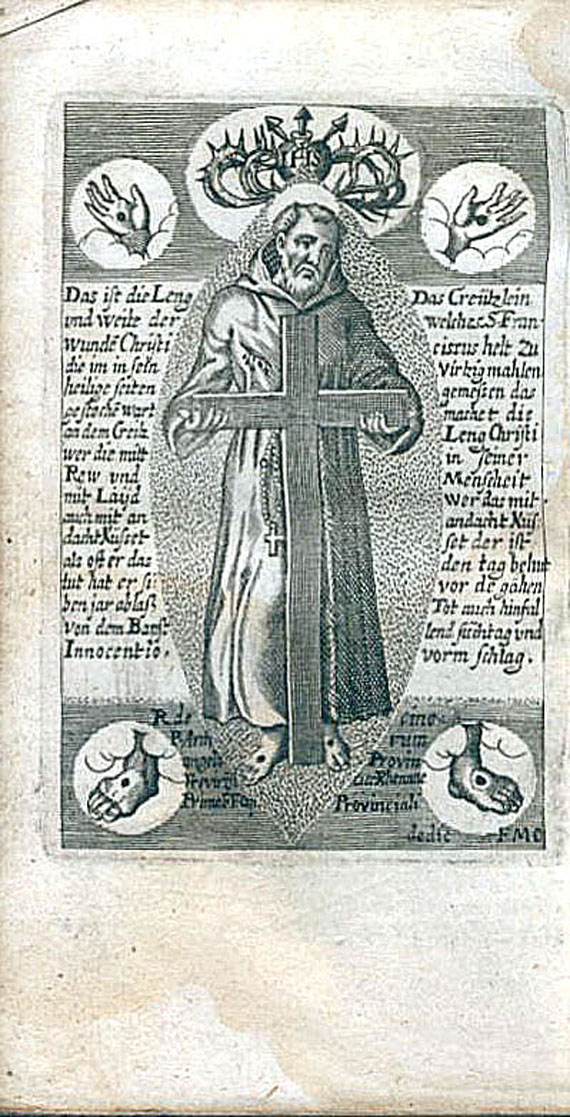 IHS
Das ist die Leng
und weite der
wunde Christi
die im in sein
heilige seiten
gestoche wart
an dem Creitz
wer die mitt
Rew und
mit Layd
auch mit an
dacht Kusset
als oft er das
tut hat er si
ben jar ablaß
von dem Bapst
Innocentio.
Das Creützlein
welches S. Fran
ciscus helt zu
virtzig mahlen
gemessen das
machet die
Leng Christi
in seiner
Menscheit
wer das mit
andacht Kus
set der ist
den tag behut
vor de gahen
Tot auch hinfal
lend suchtag und
vorm schlag.
R. de
P. Arch
angelo
Trevirj
Provin
ciae Rhenanae
Provinciali
dedic F M C